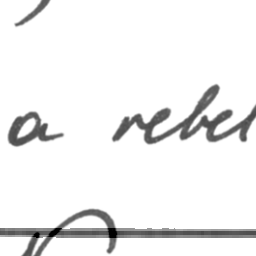 a rebel